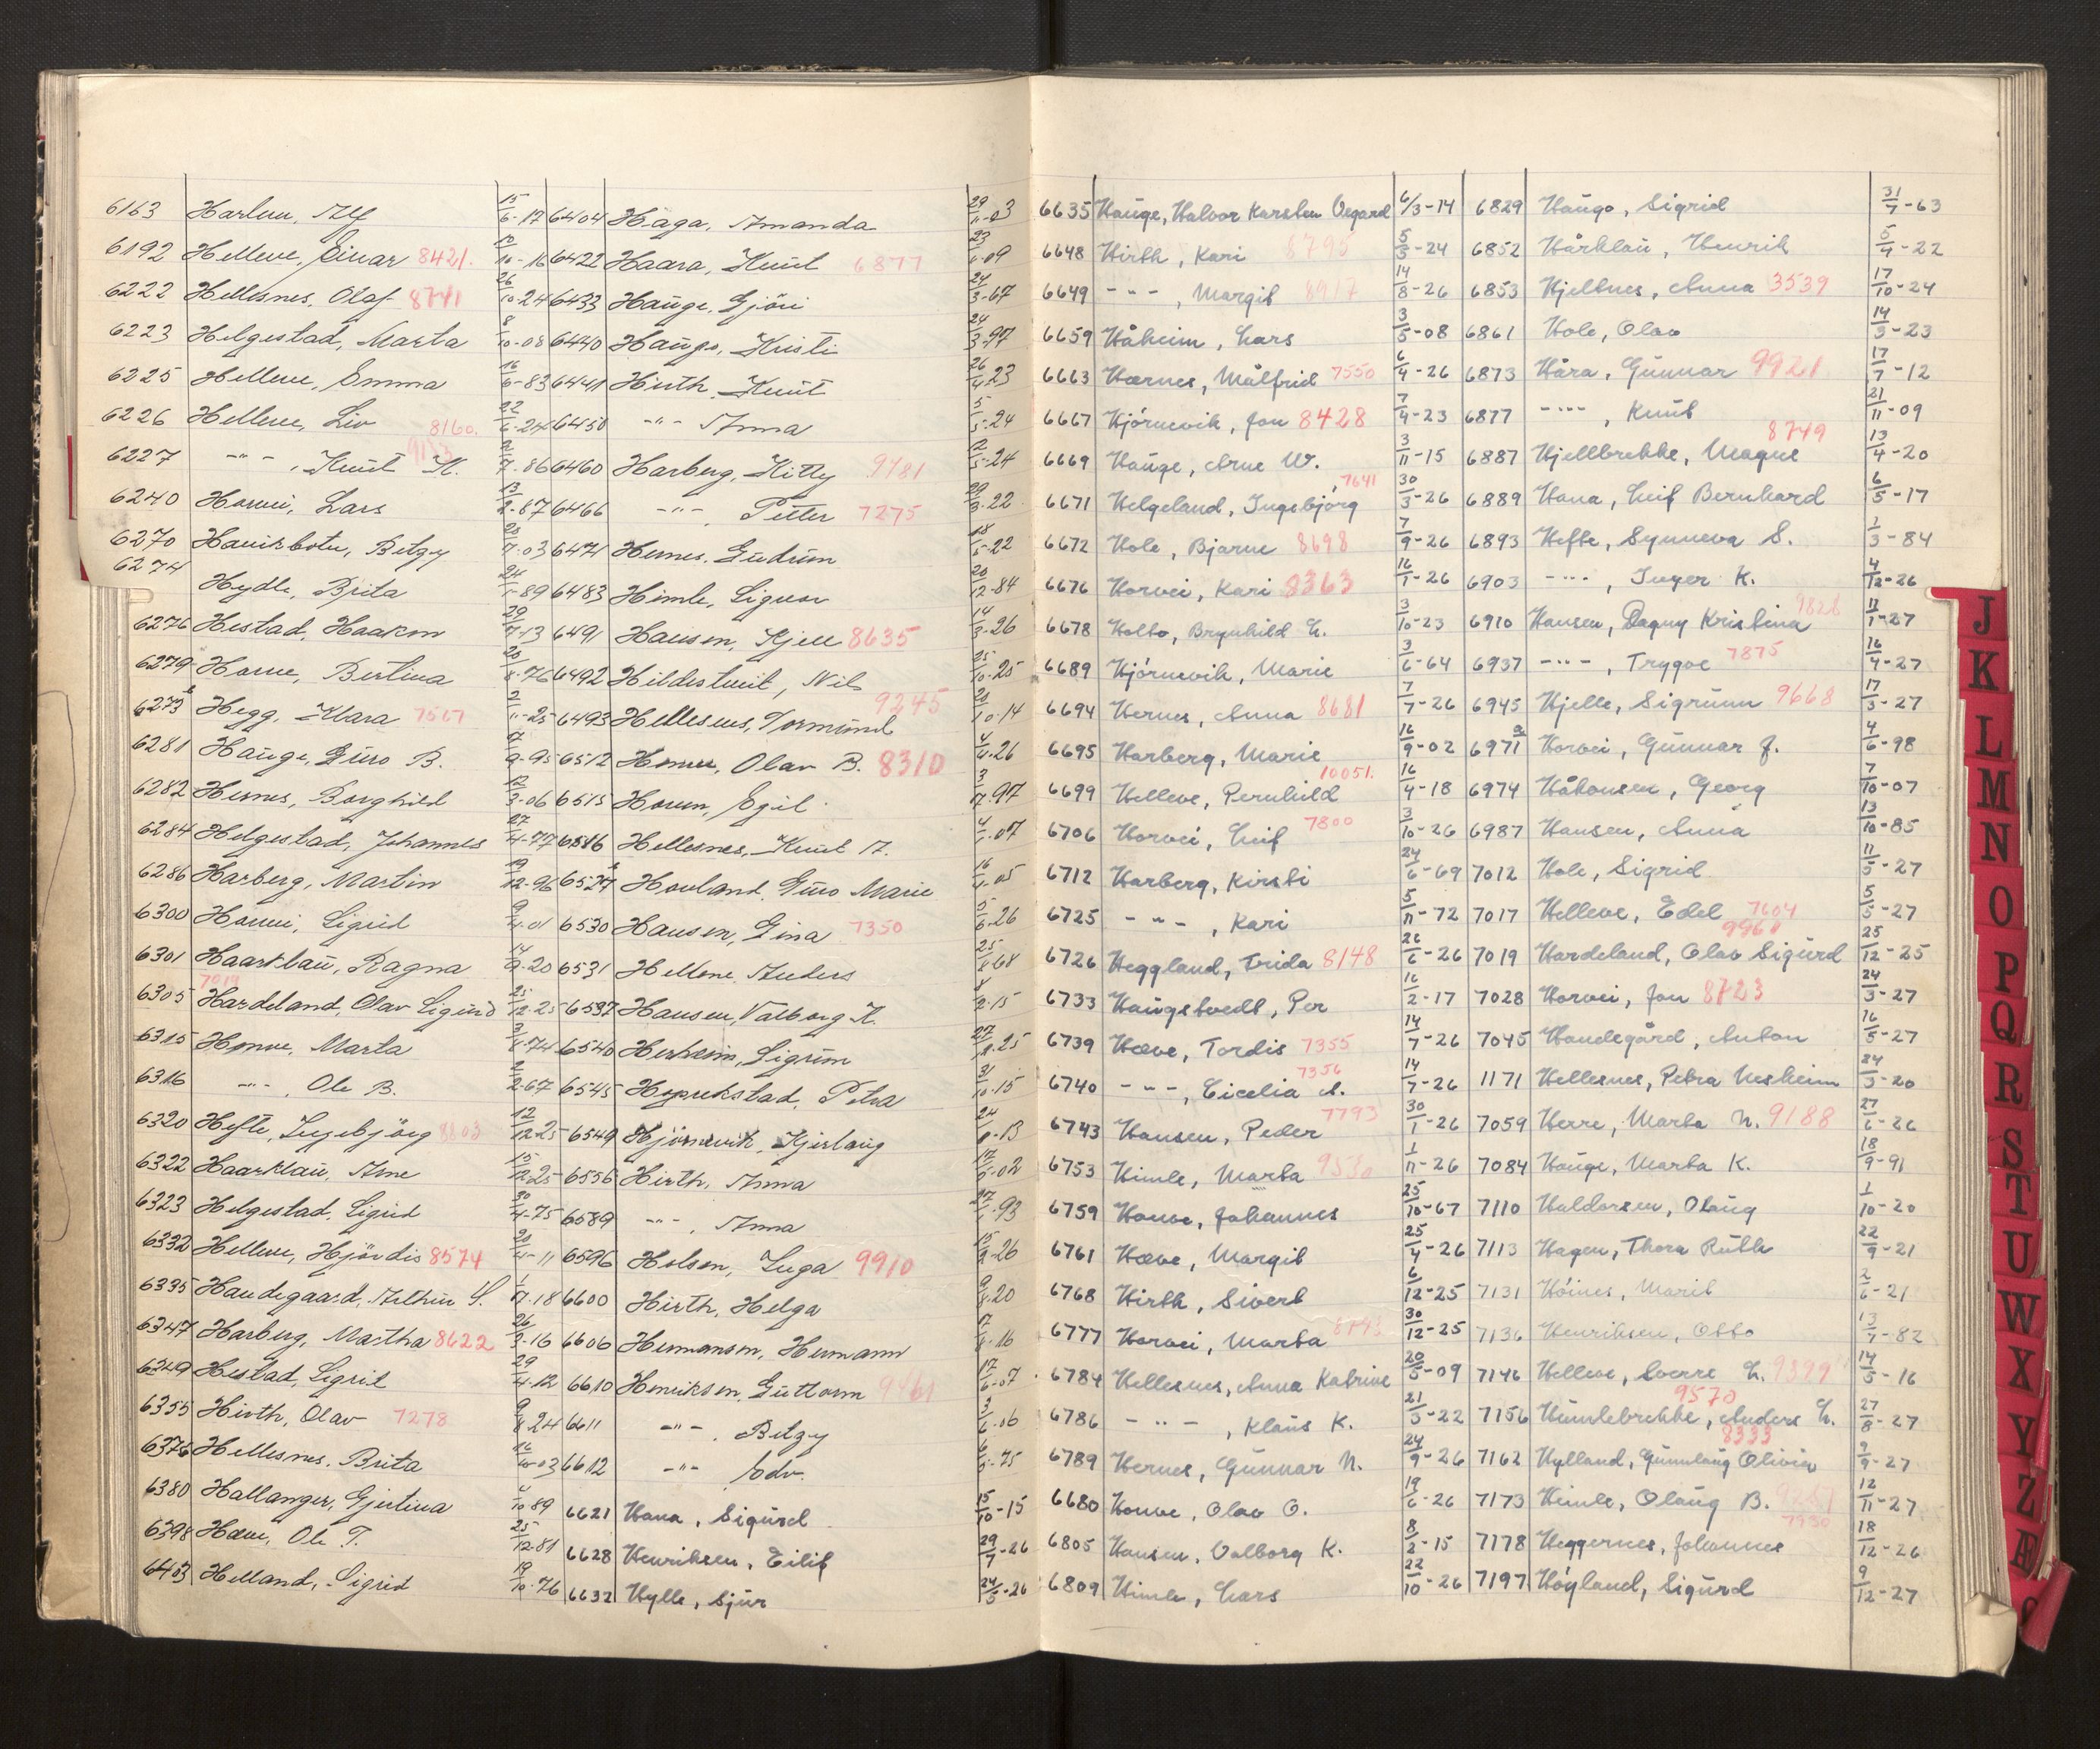 6163 Harlem, Alf 15/6-17
6192 Helleve, Einar 8421. 12/10-16
6222 Hellesnes, Olaf 8741 26/10-24
6223 Helgestad, Marta 8/10-08
6225 Helleve, Emma 16/6-83
6226 Helleve, Liv 8160. 22/6-24
6227 -"- , Knut K.
6240 Horvei, Lars 13/2-87
6270 Haukisboten, Betzy 20/7-03
6274 Hydle, Brita 24/1-89
6276 Hestad, Haakon 29/7-13
6279 Horne, Bertina
6279b Hegg, Klara 7567 2/11-25
6281 Hauge, Guro B. 9-95
6282 Hernes, Borghild 12/3-06
6284 Helgestad, Johannes 27/4-77
6286 Harberg, Martin 19/12-96
6300 Horvei, Sigrid 9/4-01
6301 Haarklau, Ragna 14/9-20
6305 Hardeland, Olav Sigurd 7019 25/12-25
6315 Honve, Marta 3/8-74
6316 -"- , Ole B. 2/2-67
6320 Hefte, Ingebjörg 8803 12/12-25
6322 Haarklau, Arne 15/12-25
6323 Helgestad, Sigrid 30/4-75
6332 Helleve, Hjördis 8574 20/4-11
6335 Handegaard, Arthur S. 1/7-18
6347 Harberg, Martha 8622 26/9-16
6349 Hestad, Sigrid 29/4-12
6355 Hirth, Olav 7278 9/8-24
6376 Hellesnes, Brita 16/10-03
6380 Hallanger, Gjertina 4/10-89
6398 Hæve, Ole T. 25/12-81
6403 Helland, Sigrid 19/10-76
6404 Haga, Amanda 29/11-03
6422 Haara, Knut 6877 23/6-09
6433 Hauge, Gjöri 24/3-67
6440 Hauge, Kristi 24/3-97
6441 Hirth, Knut 26/4-23
6450 -"- Anna 5/5-24
6460 Harberg, Kitty 9481 12/5-24
6466 -"- , Petter 7275 29/3-22
6471 Hernes, Gudrun 18/5-22
6483 Himle, Sigvor 20/12-84
6491 Hansen, Kjell 8635 14/3-26
6492 Hildestveit, Nils 25/10-25
6493 Hellesnes, Tormund 9245 21/10-14
6512 Honve, Olav B. 8310 4/4-26
6515 Hovem, Egil 3/12-97
6516 Hellesnes, Knut A. 4/1-07
6524b Hovland, Guro Marie 16/4-05
6530 Hansen, Gina 7350 5/6-26
6531 Helleve, Anders 25/8-68
6537 Hansen, Valborg K. 8/2-15
6540 Herheim, Sigrun
6545 Hoprekstad, Petra 31/10-15
6549 Hjörnevik, Kjerlaug
6556 Hirth, Anna 12/5-02
6589 -"- , Anna 27/1-93
6596 Holsen, Inga 9910 15/2-26
6600 Hirth, Helga 9/8-20
6606 Hermansen, Hermann 12/8-16
6610 Henriksen, Guttorm 9461 17/6-07
6611 -"- , Betzy 3/6-06
6612 -"- Edv. 6/5-75
6621 Hana, Sigurd 15/10-15
6628 Henriksen, Eilif 29/7-26
6632 Hylle, Sjur 24/5-26
6635 Hauge, Halvor Karsten Vegard 6/3-14
6648 Hirth, Kari 8795 5/3-24
6649 -"- , Margit 8917 14/8-26
6659 Håheim, Lars 3/5-08
6663 Hærnes, Målfrid 7550 6/4-26
6667 Hjörnevik, Jon 8428 7/4-23
6669 Hauge, Arne W. 3/11-15
6671 Helgeland, Ingebjörg 7641 30/3-26
6672 Hole, Bjarne 8698 7/9-26
6676 Horvei, Kari 8363 16/1-26
6678 Holto, Brynhild L. 3/10-23
6689 Hjörnevik, Marie 3/6-64
6694 Hernes, Anna 8681 7/7-26
6695 Harberg, Marie 16/9-02
6699 Helleve, Pernhild 10051. 16/4-18
6706 Horvei, Leif 7800 3/10-26
6712 Harberg, Kirsti 24/6-69
6725 -"- , Kari 5/11-72
6726 Heggland, Frida 8148 26/6-26
6733 Haugstvedt, Per 16/2-17
6739 Hæve, Tordis 7355 14/7-26
6740 -"- , Cicelia A. 7356 14/7-26
6743 Hansen, Peder 7793 30/1-26
6753 Himle, Marta 9530 1/11-26
6759 Honve, Johannes 25/10-67
6761 Hæve, Margit 25/4-26
6768 Hirth, Sivert 6/12-25
6777 Horvei, Marta 8793 30/12-25
6784 Hellesnes, Anna Katrine 20/5-09
6786 -"- , Klaus K. 21/3-22
6789 Hernes, Gunnar N. 24/9-26
6680 Honve, Olav O. 19/6-26
6805 Hansen, Valborg K. 8/2-15
6809 Himle, Lars 22/10-26
6829 Hauge, Sigrid 31/7-63
6852 Hårklau, Henrik 5/4-22
6853 Hjeltnes, Anna 3539 17/10-24
6861 Hole, Olav 14/3-23
6873 Håra, Gunnar 9921 17/7-12
6877 -"- , Knut 21/11-09
6887 Hjellbrekke, Magne 8749 13/4-20
6889 Hana, Leif Bernhard 6/5-17
6893 Hefte, Synneva S. 1/3-84
6903 -"- , Inger K. 4/12-26
6910 Hansen, Dagny Kristina 9828 12/1-27
6937 -"- , Trygve 7875 16/4-27
6945 Hjelle, Sigrunn 9668 17/3-27
6971a Horvei, Gunnar J. 4/6-98
6974 Håkonsen, Georg 7/10-07
6987 Hansen, Anna 13/10-85
7012 Hole, Sigrid 11/5-27
7017 Helleve, Edel 7604 5/5-27
7019 Hardeland, Olav Sigurd 9960 25/12-25
7028 Horvei, Jon 8723 24/3-27
7045 Handegård, Anton 16/5-27
1171 Hellesnes, Petra Nesheim 24/3-20
7059 Herre, Marta N. 9188 27/6-26
7084 Hauge, Marta K. 18/9-91
7110 Haldorsen, Olaug 1/10-20
7113 Hagen, Thora Ruth 22/9-21
7131 Höines, Marit 2/6-21
7136 Henriksen, Otto 13/7-82
7146 Helleve, Sverre L. 9399 14/5-16
7156 Humlebrekke, Anders L. 9570 27/8-27
7162 Hylland, Gunnlaug Olivia 8333 9/9-27
7173 Himle, Olaug B. 12/11-27
7178 Heggernes, Johannes 7930 18/12-26
7197 Höyland, Sigurd 9/12-27
J
K
L
M
N
O
P
Q
R
S
T
U
W
X
Y
Z
Æ